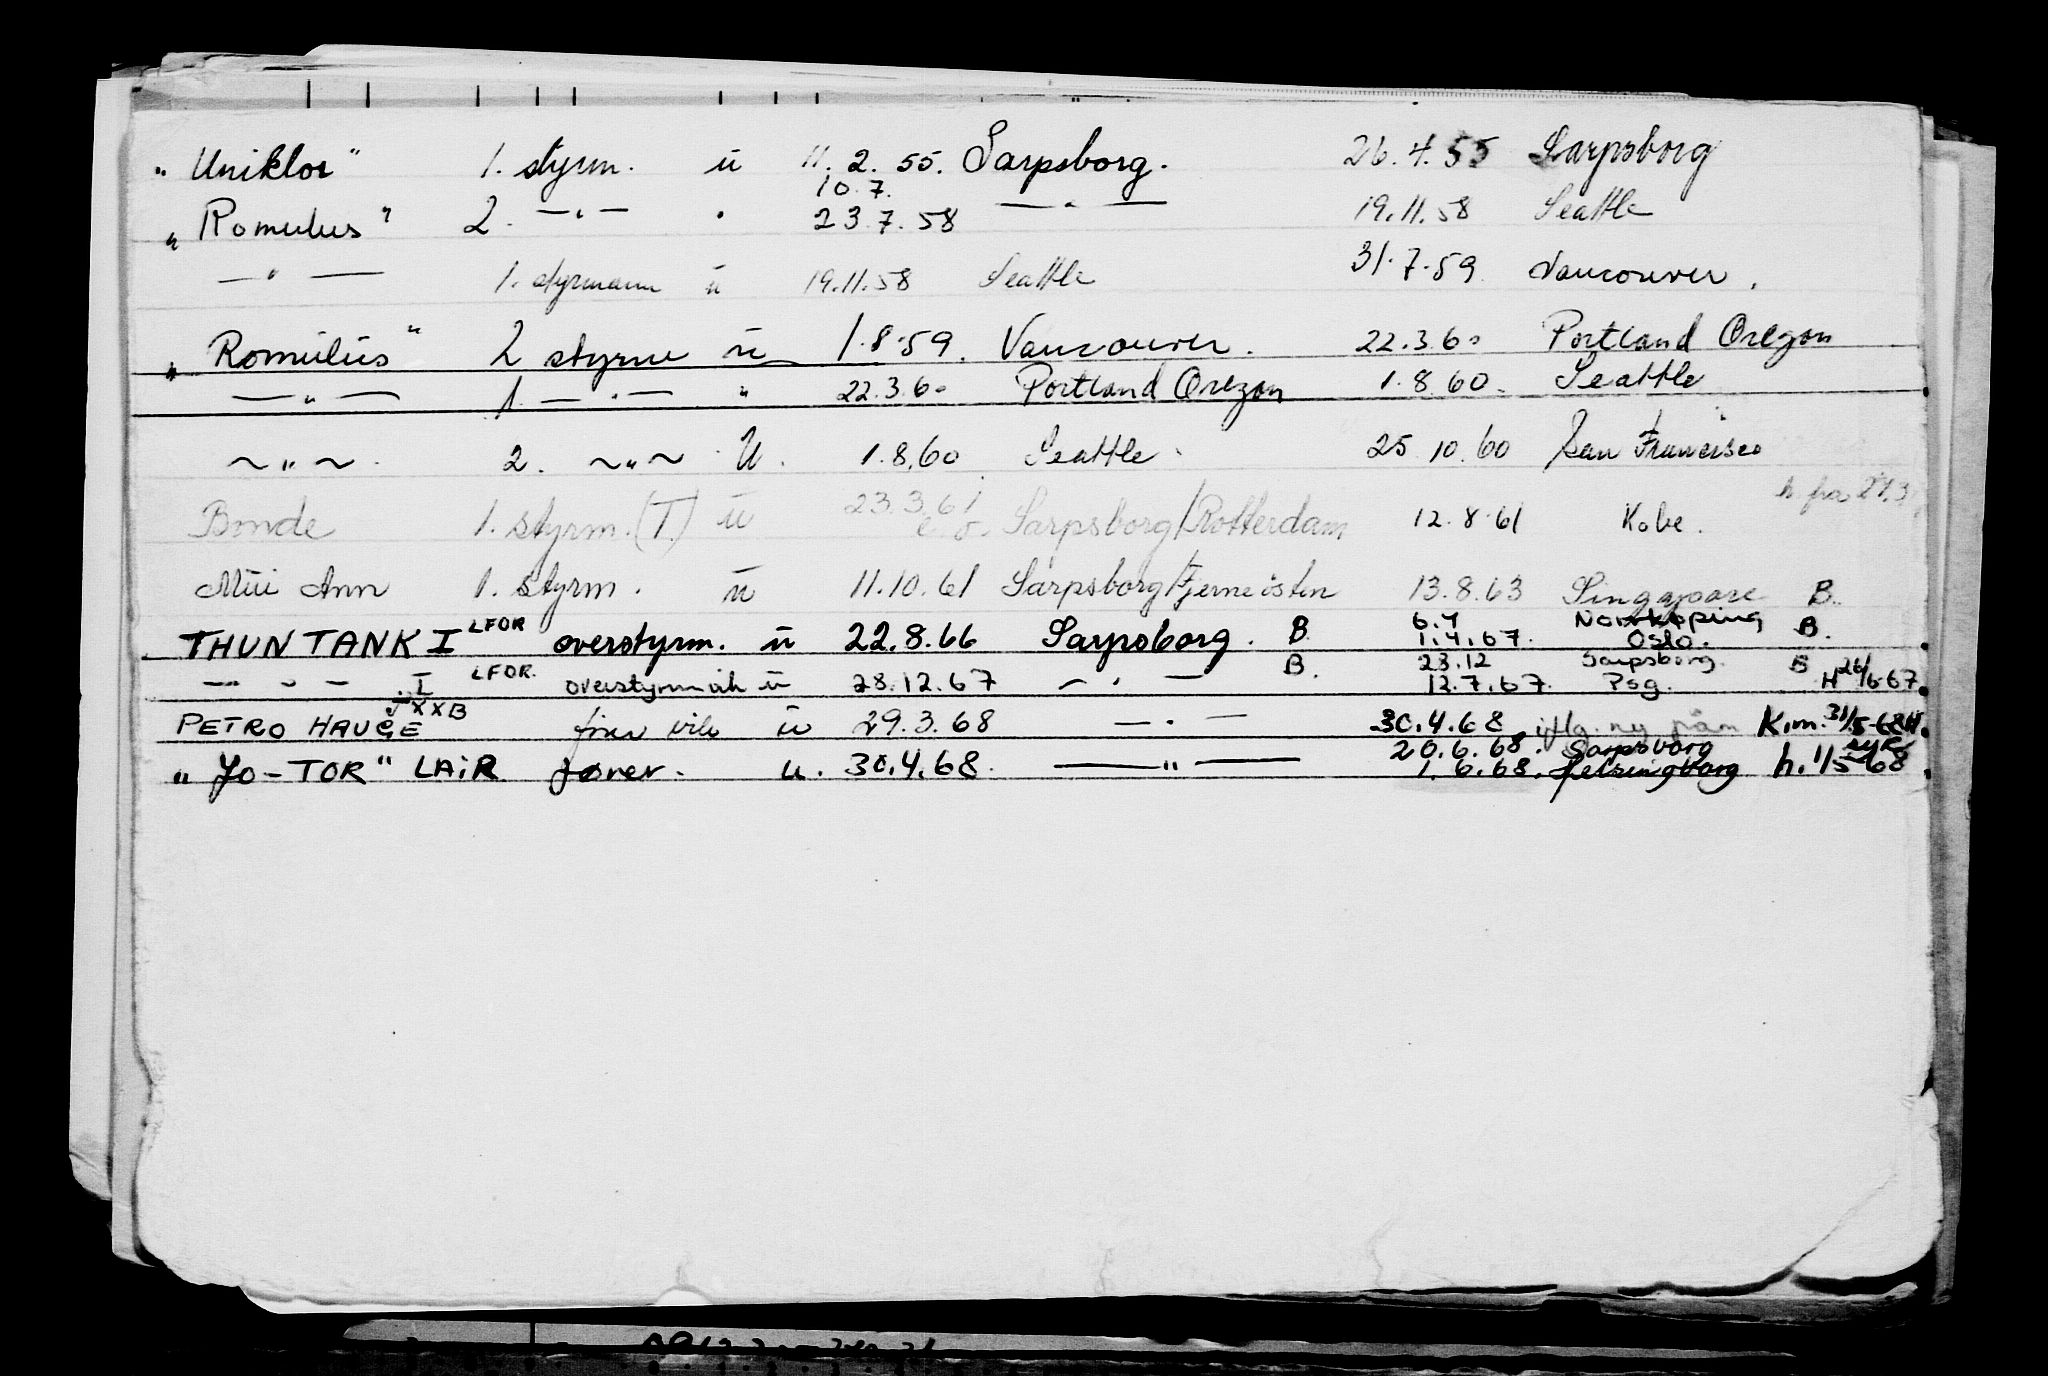 "Uniklor" 1. styrm. ü 11.2.55. Sarpsborg. 26.4.55 Sarpsborg
10.7.
"Romulus" 2. —"— " 23.7.58 —"— 19.11.58 Seattle
—"— 1. styrmann ü 19.11.58 Seattle 31.7.59 Vancouver.
"Romulus" 2 styrm ü 1.8.59. Vancouver. 22.3.60 Portland Oregon
—"— 1. —"— " 22.3.60 Portland Oregon 1.8.60. Seattle
~"~. 2. ~"~ U. 1.8.60 Seattle. 25.10.60 San Francisco
h. fra
Bonde 1. styrm. (T.) ü 23.3.61 e.o. Sarpsborg/Rotterdam 12.8.61 Kobe.
Ann 1. styrm. ü 11.10.61 Sarpsborg/Fjerneisten 13.8.63 Singapore B.
6.4 Norrköping
THUN TANK I LFOR overstyrm. ü 22.8.66 Sarpsborg. B. 1.4.67. Oslo. B.
23.12 Sarpsborg. B
—"— I LFOR. overstyrm vik ü 28.12.67 —"— B. 12.7.67. Psg. H 26/6-67.
JXXB
PETRO HAUGE ü 29.3.68 —"— 30.4.68 iflg. ny K.m. 31/5-68
20.6.68. Sarpsborg
"JO-TOR" LAIR fører. u. 30.4.68. —"— 1.6.68. Helsingborg h. 1/5 68